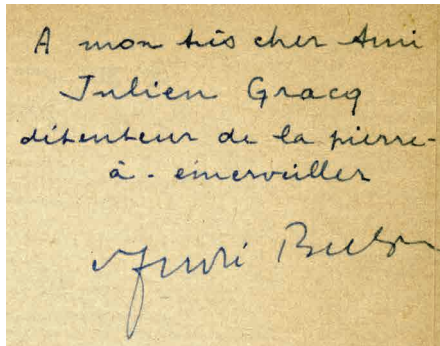 A mon très cher Ami
Julien Gracq
détenteur de la pierre-
à-émerveiller